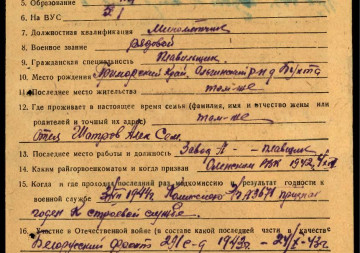 5. Образование
6. На ВУС
7. Должностная квалификация Минометчик
8. Военное звание Рядовой
9. Гражданская специальность Плавильщик
10. Место рождения Приморский край, Ольгинский р-н
11. Последнее место жительства там-же
12. Где проживает в настоящее время семья (фамилия, имя и отчество жены или
родителей и точный их адрес) там-же
Отец Шатров Алек Сем.
13. Последнее место работы и должность Завод - плавильщик
14. Каким райгорвоенкоматом и когда призван РВК 1942
15. Когда и где проходил последний раз медкомиссию и результат годности к
военной службе 1944 признан
годен к строевой службе.
16. Участие в Отечественной войне (в составе какой последней части в качестве
Белорусский фронт с-д 1943г -